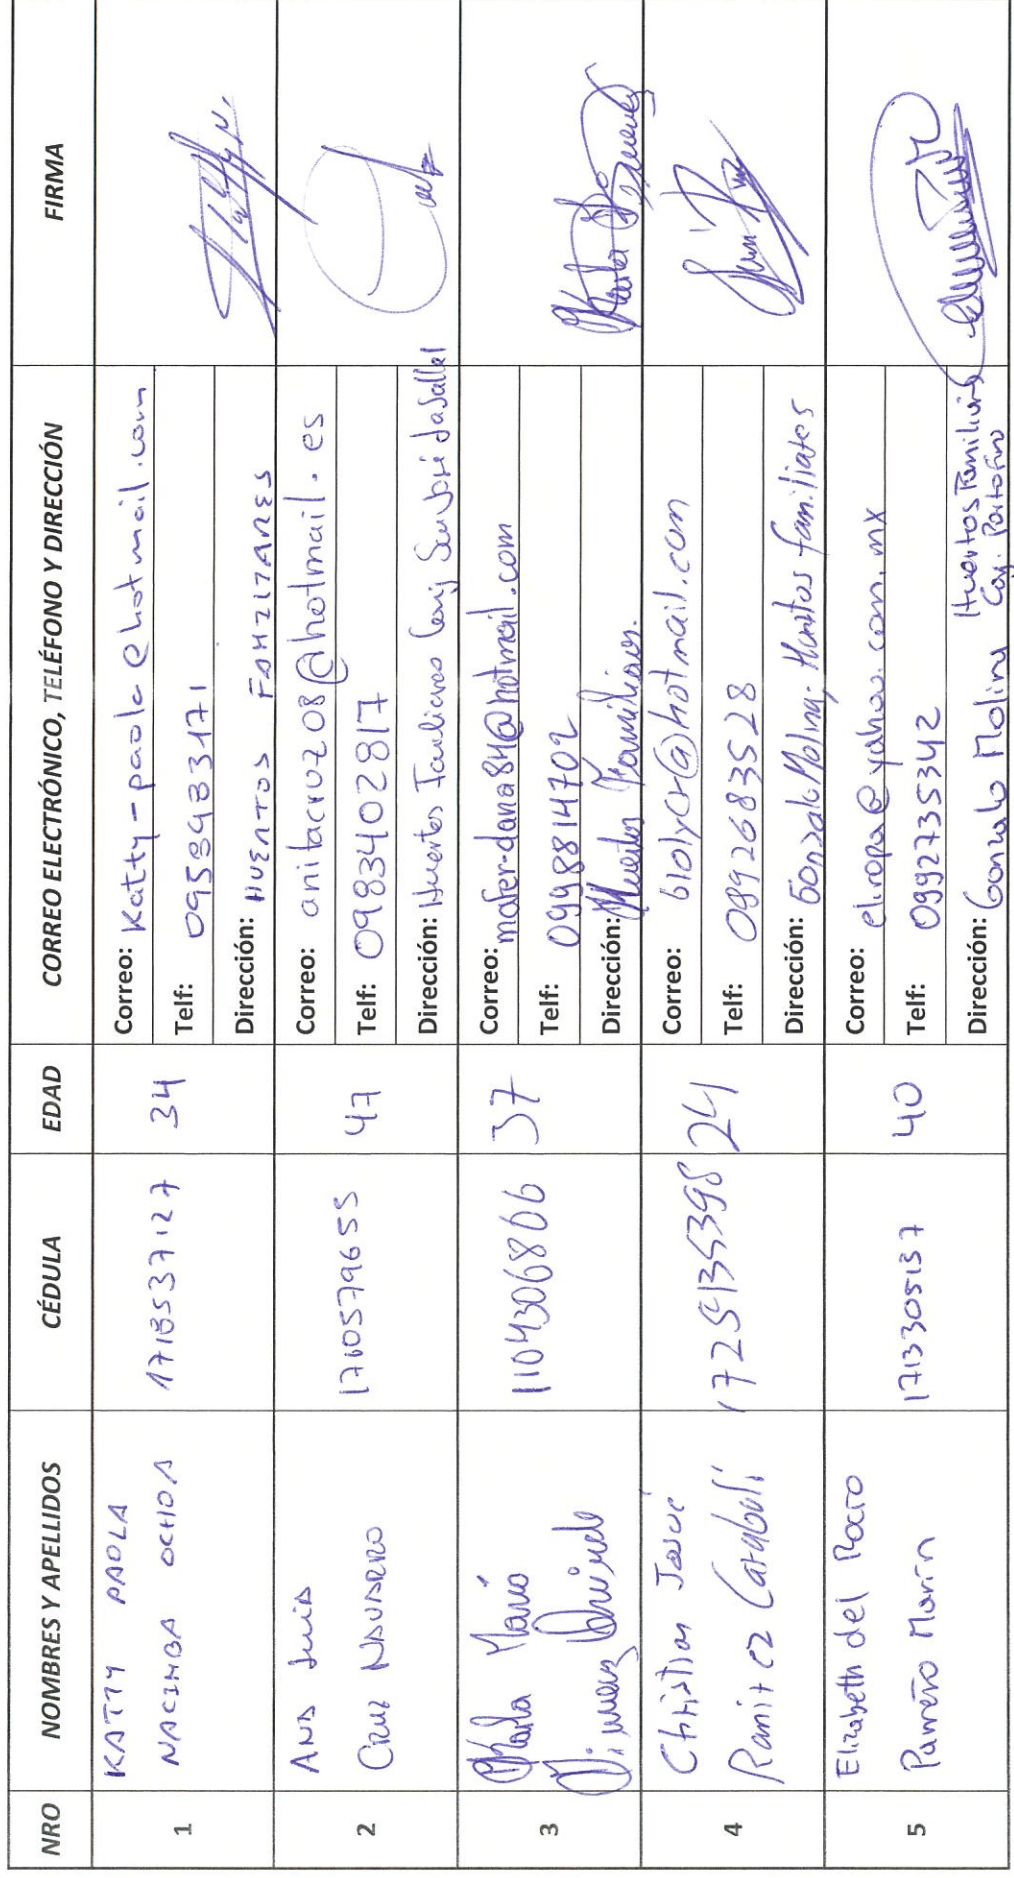 NRO NOMBRES Y APELLIDOS CÉDULA EDAD CORREO ELECTRÓNICO, TELÉFONO Y DIRECCIÓN FIRMA
1
KATTY PAOLA
NACIMBA OCHOA
1718537127
34
Correo: Katty-paola@hotmail.com
Telf: 0959833171
Dirección: HUERTOS FAMILIARES
2
ANA Luisa
CRUZ NAVARRO
1760579655
47
Correo: anitacruz08@hotmail.es
Telf: 0983402817
Dirección: Huertos Familiares Conj San José LaSalle
3
Karla María
Jimenez
1104306806
37
Correo: mafer-dana84@hotmail.com
Telf: 0998814702
Dirección: Huertos Familiares.
4
Christian Josué
Ramirez Carabalí
1725435398
24
Correo: biolycr@hotmail.com
Telf: 0992683528
Dirección: Gonzalo Molina, Huertos familiares
5
Elizabeth del Rocío
Parreño Marín
1713305137
40
Correo: eliropa@yahoo.com.mx
Telf: 0992735342
Dirección: Gonzalo Molina Huertos Familiares
Conj. Portofino